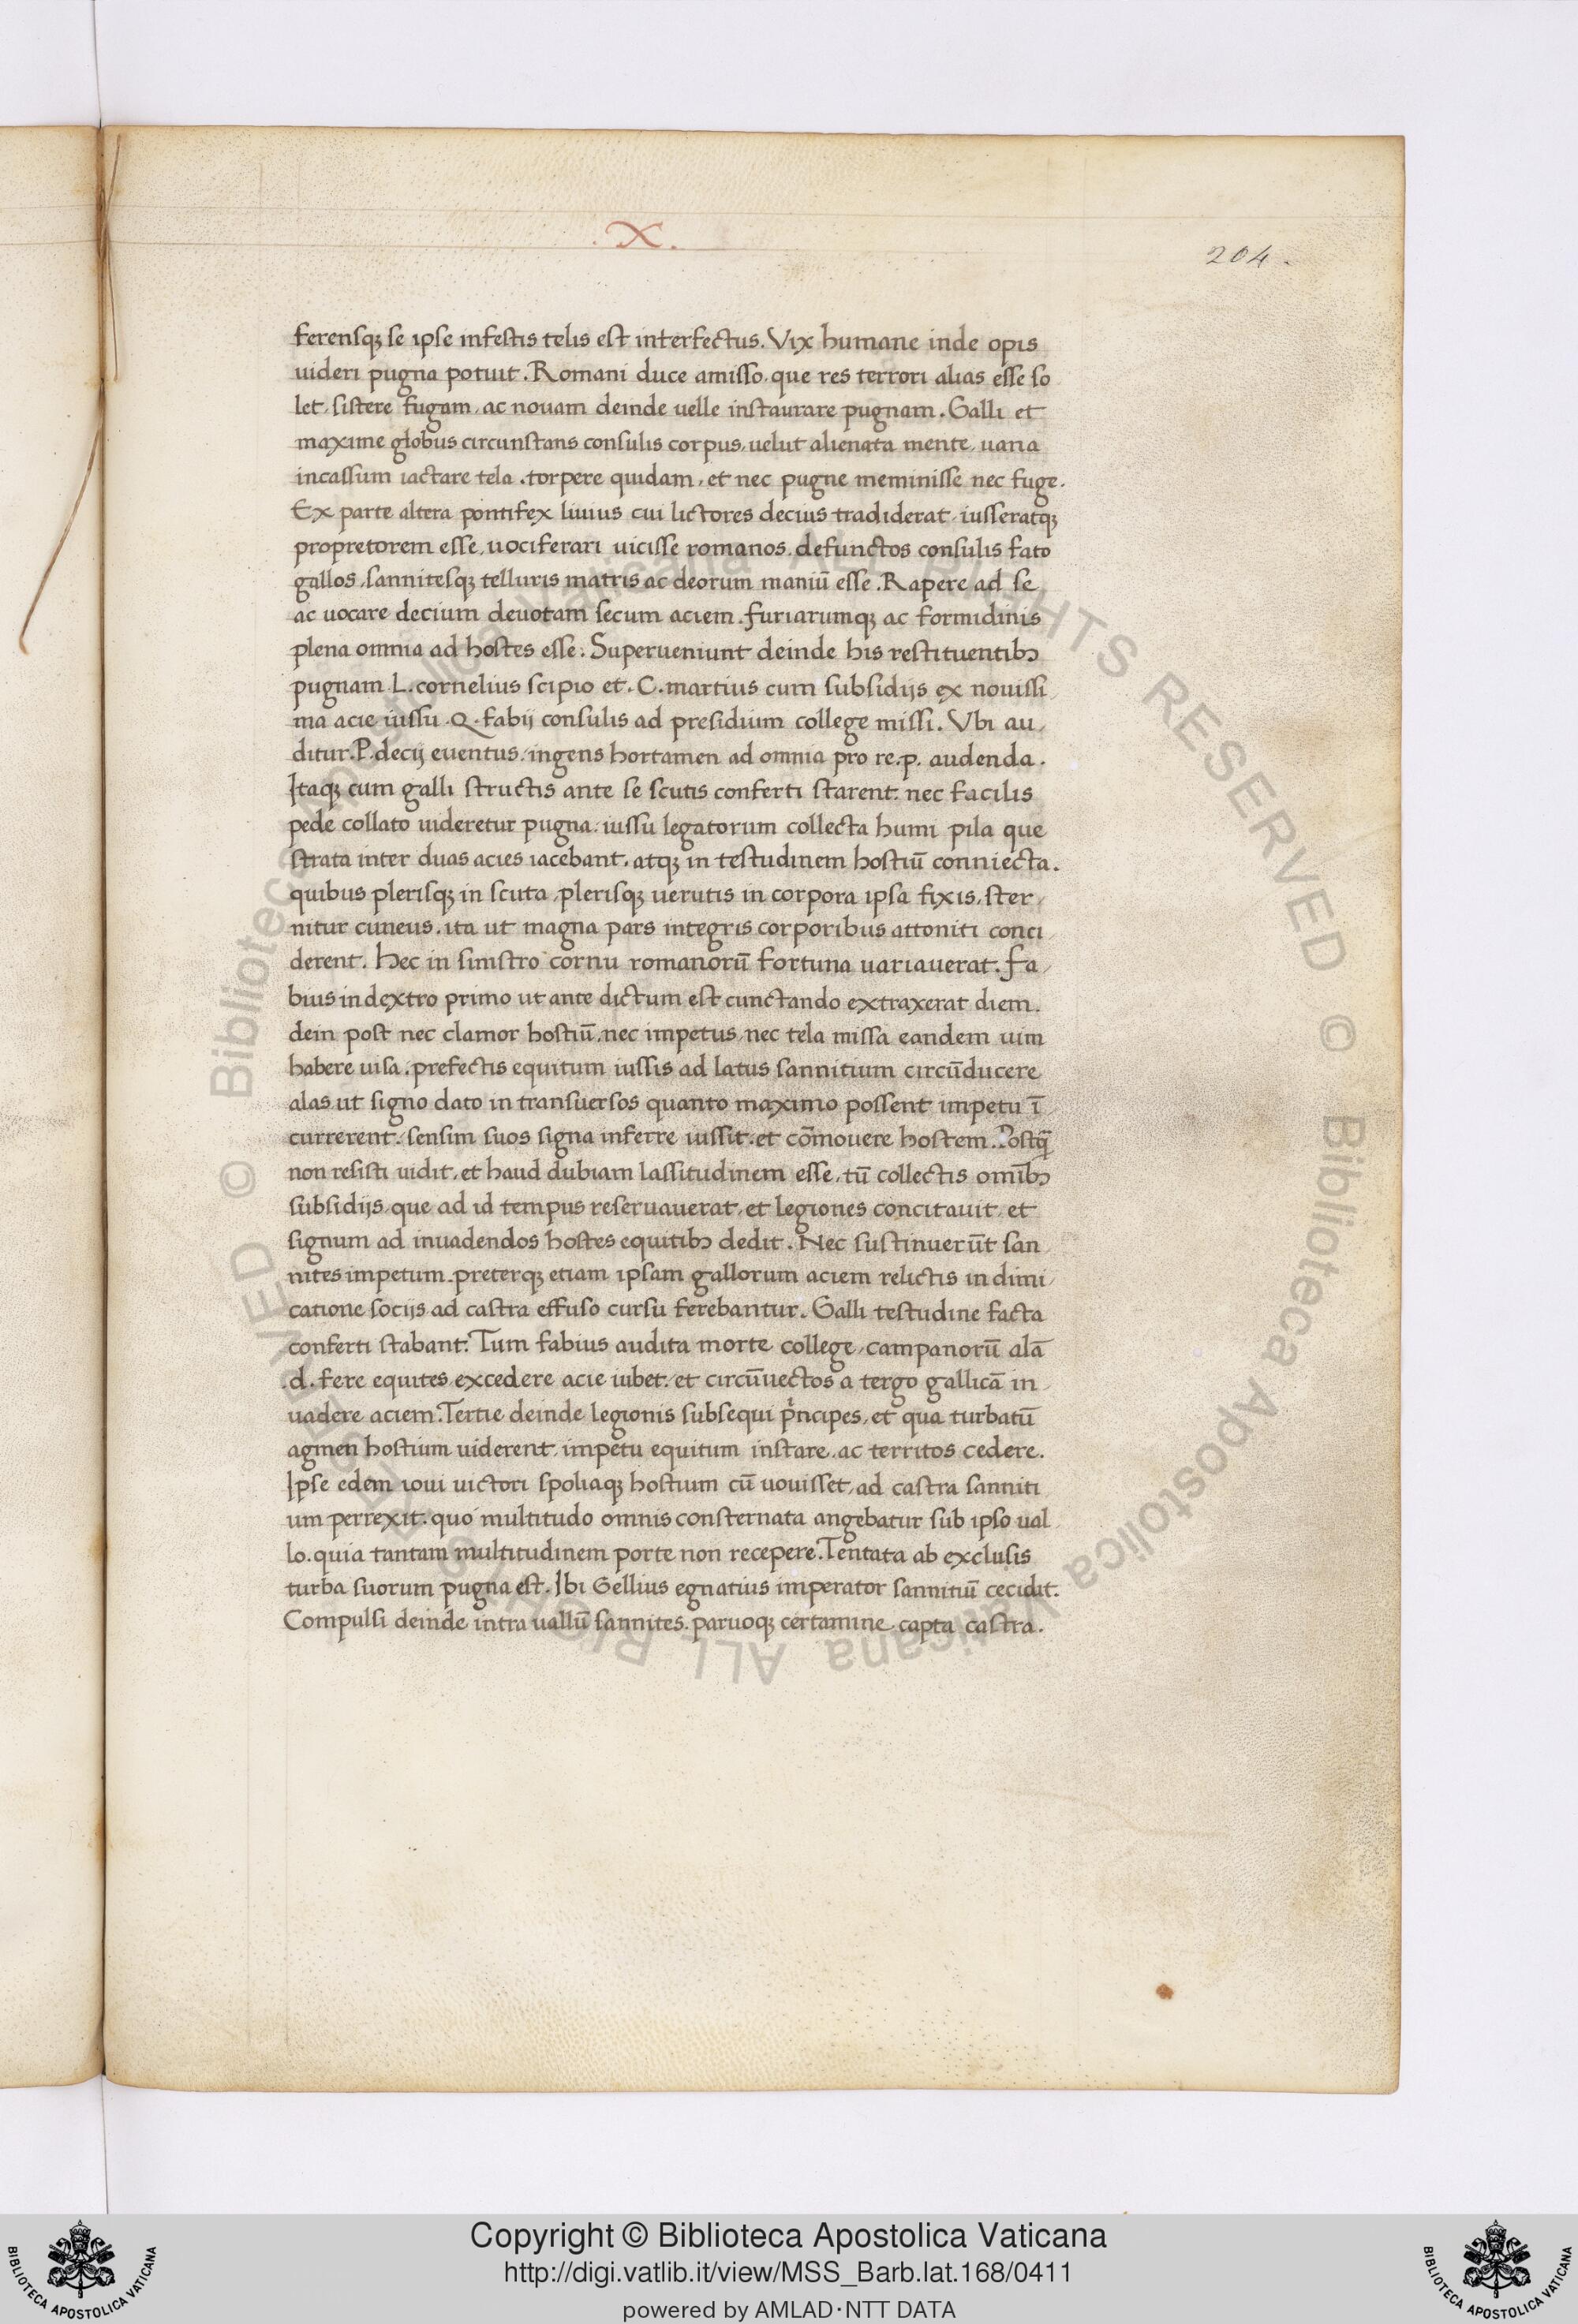 .X.
204.
ferensqꝫ se ipse infestis telis est interfectus. Vix humane inde opis
uideri pugna potuit. Romani duce amisso, que res terrori alias esse so
let, sistere fugam, ac nouam deinde uelle instaurare pugnam. Galli et
maxime globus circunstans consulis corpus, uelut alienata mente, uana
incassum iactare tela. torpere quidam, et nec pugne meminisse nec fuge.
Ex parte altera pontifex liuius cui lictores decius tradiderat, iusseratqꝫ
propretorem esse, uociferari uicisse romanos. defunctos consulis fato
gallos, sannitesqꝫ telluris matris ac deorum maniū esse. Rapere ad se
ac uocare decium deuotam secum aciem. furiarumqꝫ ac formidinis
plena omnia ad hostes esse. Superueniunt deinde his restituentibꝫ
pugnam L. cornelius scipio et. C. martius cum subsidijs ex nouissi
ma acie iussu .Q. fabij consulis ad presidium college missi. Vbi au
ditur. P. decij euentus, ingens hortamen ad omnia pro re. p. audenda.
Itaqꝫ cum galli structis ante se scutis conferti starent. nec facilis
pede collato uideretur pugna. iussu legatorum collecta humi pila que
strata inter duas acies iacebant. atqꝫ in testudinem hostiū conniecta.
quibus plerisqꝫ in scuta, plerisqꝫ uerutis in corpora ipsa fixis, ster
nitur cuneus. ita ut magna pars integris corporibus attoniti conci
derent. Hec in sinistro cornu romanorū fortuna uariauerat. Fa
bius in dextro primo ut ante dictum est cunctando extraxerat diem.
dein post nec clamor hostiū, nec impetus, nec tela missa eandem uim
habere uisa. prefectis equitum iussis ad latus sannitium circūducere
alas ut signo dato in transuersos quanto maximo possent impetu ī
currerent. sensim suos signa inferre iussit. et cōmouere hostem. Postqꝫ̄
non resisti uidit, et haud dubiam lassitudinem esse, tū collectis omībꝫ
subsidijs, que ad id tempus reseruauerat, et legiones concitauit, et
signum ad inuadendos hostes equitibꝫ dedit. Nec sustinuerūt san
nites impetum. preterqꝫ etiam ipsam gallorum aciem relictis in dimi
catione socijs ad castra effuso cursu ferebantur. Galli testudine facta
conferti stabant. Tum fabius audita morte college, campanorū alā
.d. fere equites, excedere acie iubet. et circūuectos a tergo gallicā in
uadere aciem. Tertie deinde legionis subsequi p̄ncipes, et qua turbatū
agmen hostium uiderent, impetu equitum instare, ac territos cedere.
Ipse edem ioui uictori spoliaqꝫ hostium cū uouisset, ad castra sanniti
um perrexit. quo multitudo omnis consternata angebatur sub ipso ual
lo. quia tantam multitudinem porte non recepere. Tentata ab exclusis
turba suorum pugna est. Ibi Gellius egnatius imperator sannitiū cecidit.
Compulsi deinde intra uallū sannites. paruoqꝫ certamine capta castra.
© Biblioteca Apostolica Vaticana ALL RIGHTS RESERVED © Biblioteca Apostolica Vaticana ALL RIGHTS RESERVED
Copyright © Biblioteca Apostolica Vaticana
http://digi.vatlib.it/view/MSS_Barb.lat.168/0411
powered by AMLAD·NTT DATA
BIBLIOTECA APOSTOLICA VATICANA
BIBLIOTECA APOSTOLICA VATICANA